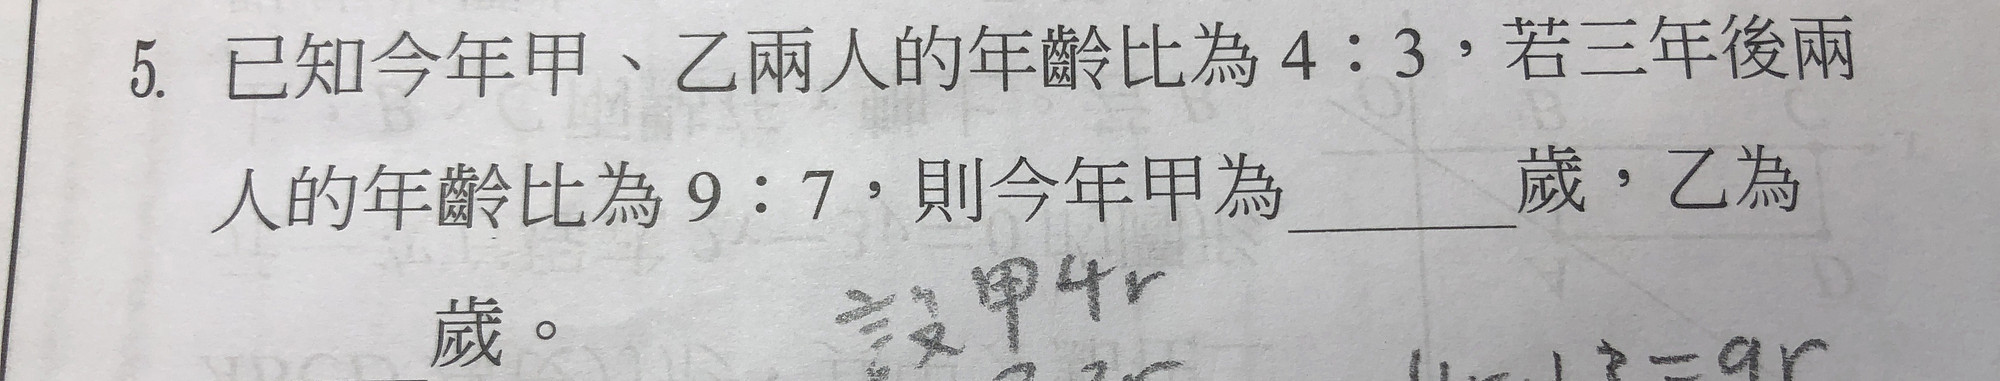 5. 已知今年甲、乙兩人的年齡比為 4：3，若三年後兩
人的年齡比為 9：7，則今年甲為______歲，乙為
歲。
設甲4r
4r+3=9r